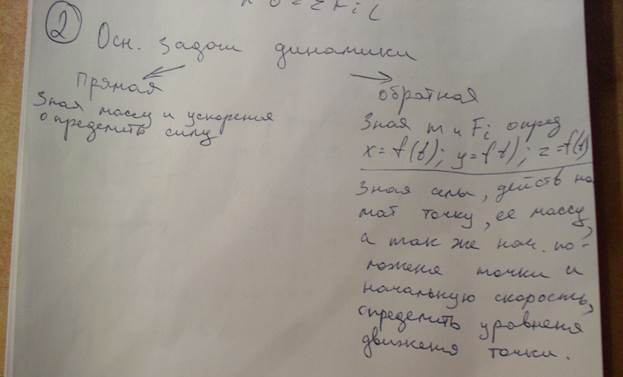 = Σ Fi
2 Осн. задачи динамики
Прямая
Зная массу и ускорения
определить силу
обратная
Зная m и Fi опред
x = f(t); y = f t); z = f(t)
Зная силы, действ на
мат точку, ее массу,
а так же нач. по-
ложеня точки и
начальную скорость,
определить уровненя
движеня точки.